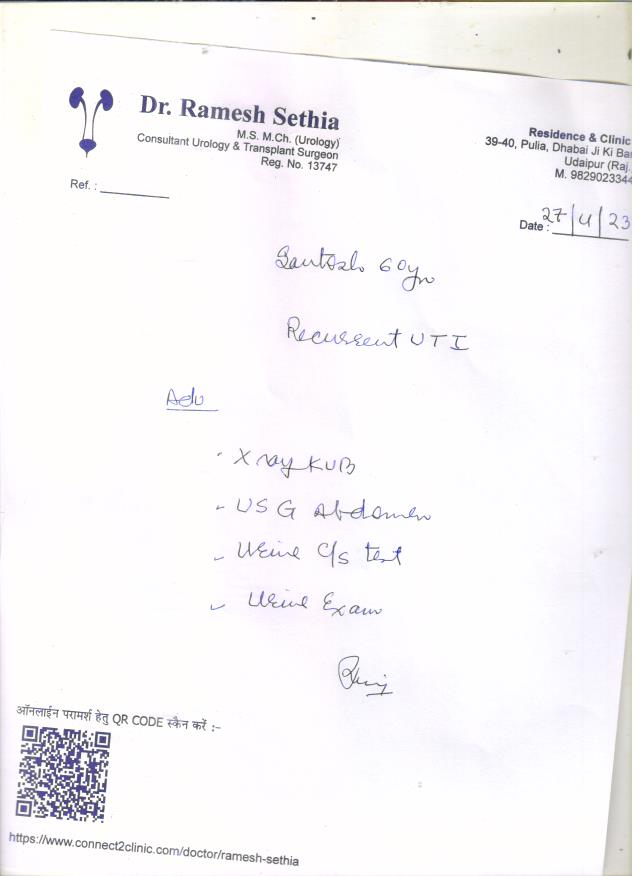 Dr. Ramesh Sethia
M.S. M.Ch. (Urology)
Consultant Urology & Transplant Surgeon
Reg. No. 13747
Residence & Clinic
39-40, Pulia, Dhabai Ji Ki Ba
Udaipur (Raj.
M. 9829023344
Ref. :
Date : 27/4/23
Santosh 60yr
Recurrent UTI
Adv
X ray KUB
USG Abdomen
Urine C/s test
Urine Exam
ऑनलाईन परामर्श हेतु QR CODE स्कैन करें :-
https://www.connect2clinic.com/doctor/ramesh-sethia